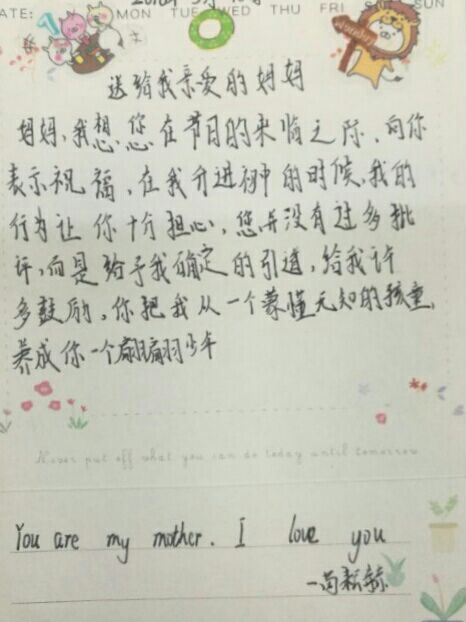 ATE: MON TUE WED THU FRI SUN
送给我亲爱的妈妈
妈妈,我想您在节日的来临之际,向你
表示祝福,在我升进初中的时候,我的
行为让你十分担心,您并没有过多批
评,而是给予我确定的引道,给我许
多鼓励,你把我从一个蒙懂无知的孩童,
养成你一个翩翩少年
Never put off what you can do today until tomorrow
You are my mother. I love you